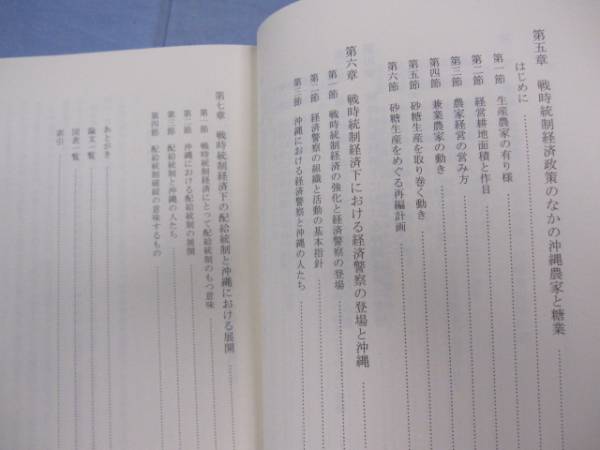 第五章 戦時統制経済政策のなかの沖縄農家と糖業
はじめに
第一節 生産農家の有り様
第二節 経営耕地面積と作目
第三節 農家経営の営み方
第四節 兼業農家の動き
第五節 砂糖生産を取り巻く動き
第六節 砂糖生産をめぐる再編計画
第六章 戦時統制経済下における経済警察の登場と沖縄
第一節 戦時統制経済の強化と経済警察の登場
第二節 経済警察の組織と活動の基本指針
第三節 沖縄における経済警察と沖縄の人たち
第七章 戦時統制経済下の配給統制と沖縄における展開
第一節 戦時統制経済にとって配給統制のもつ意味
第二節 沖縄における配給統制の展開
第三節 配給統制と沖縄の人たち
第四節 配給統制破綻の意味するもの
あとがき
論文一覧
図表一覧
索引